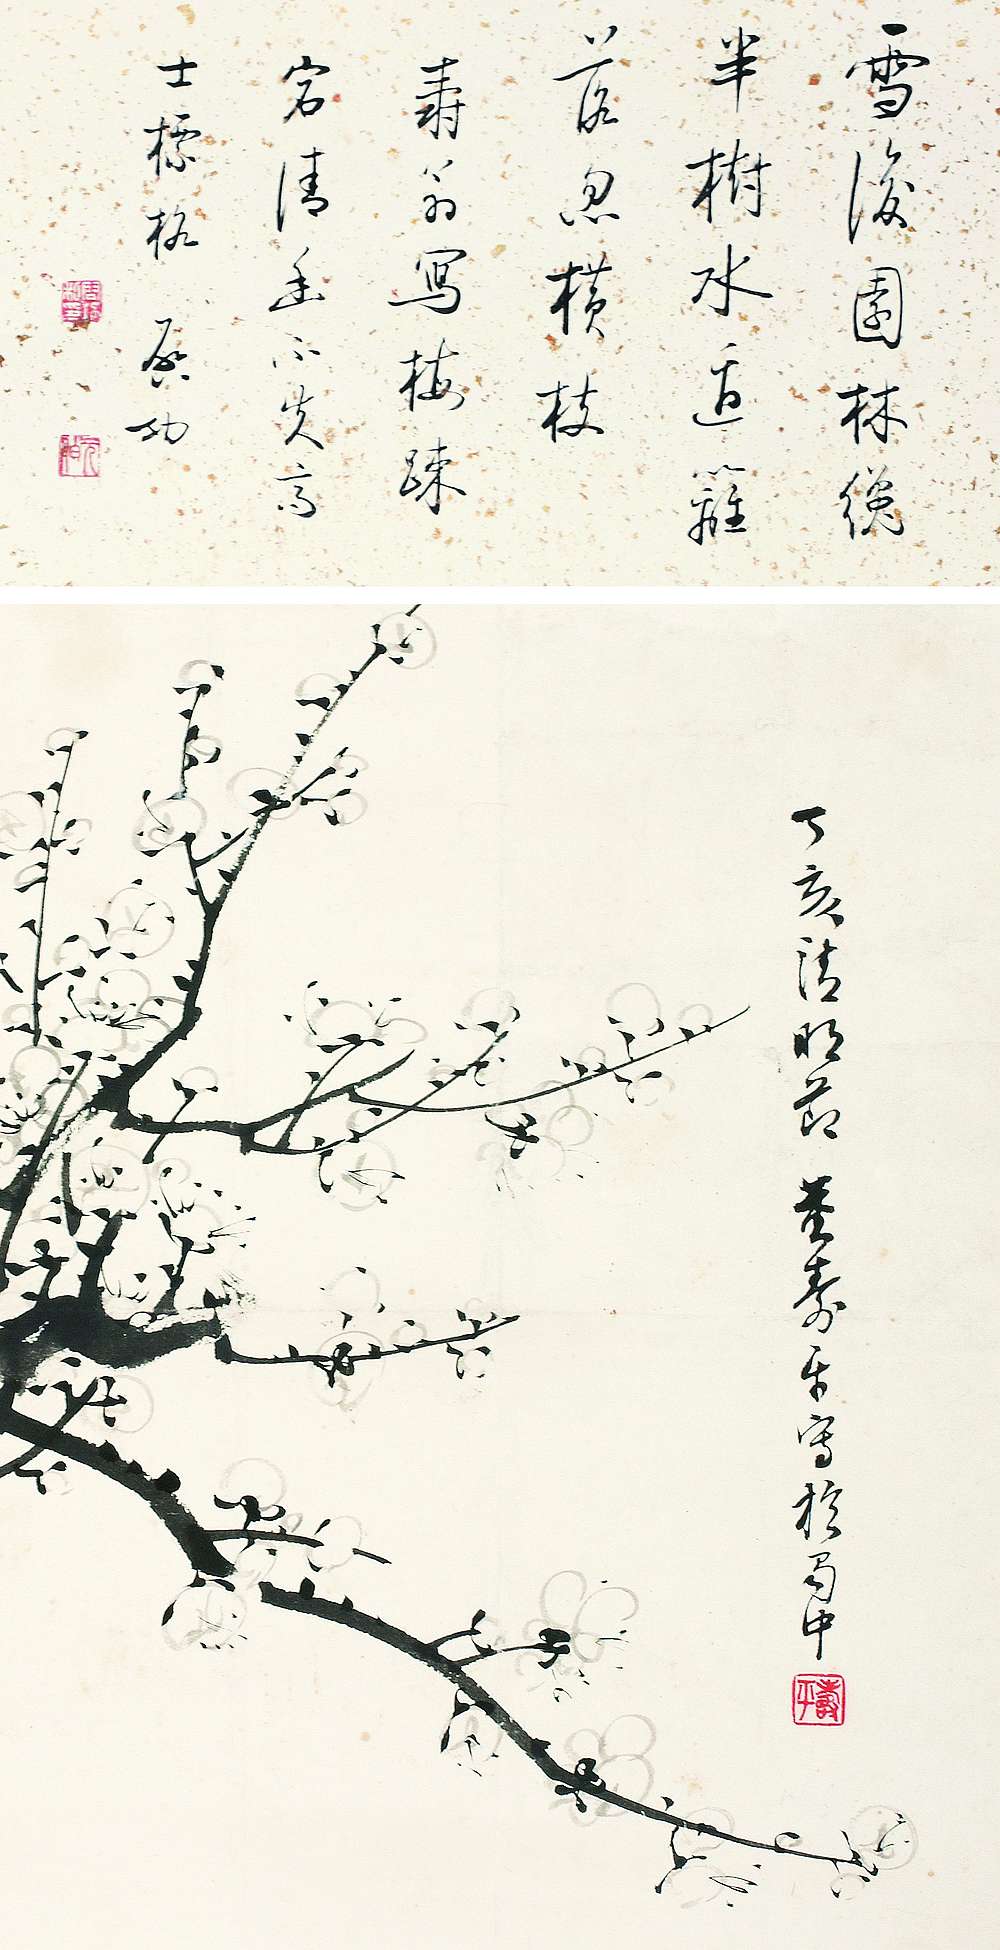 雪後園林纔
半樹水邊籬
落忽横枝
壽翁寫梅疎
宕清幽不失高
士標格 啟功
元白
丁亥清明節 董壽平寫於蜀中
壽平